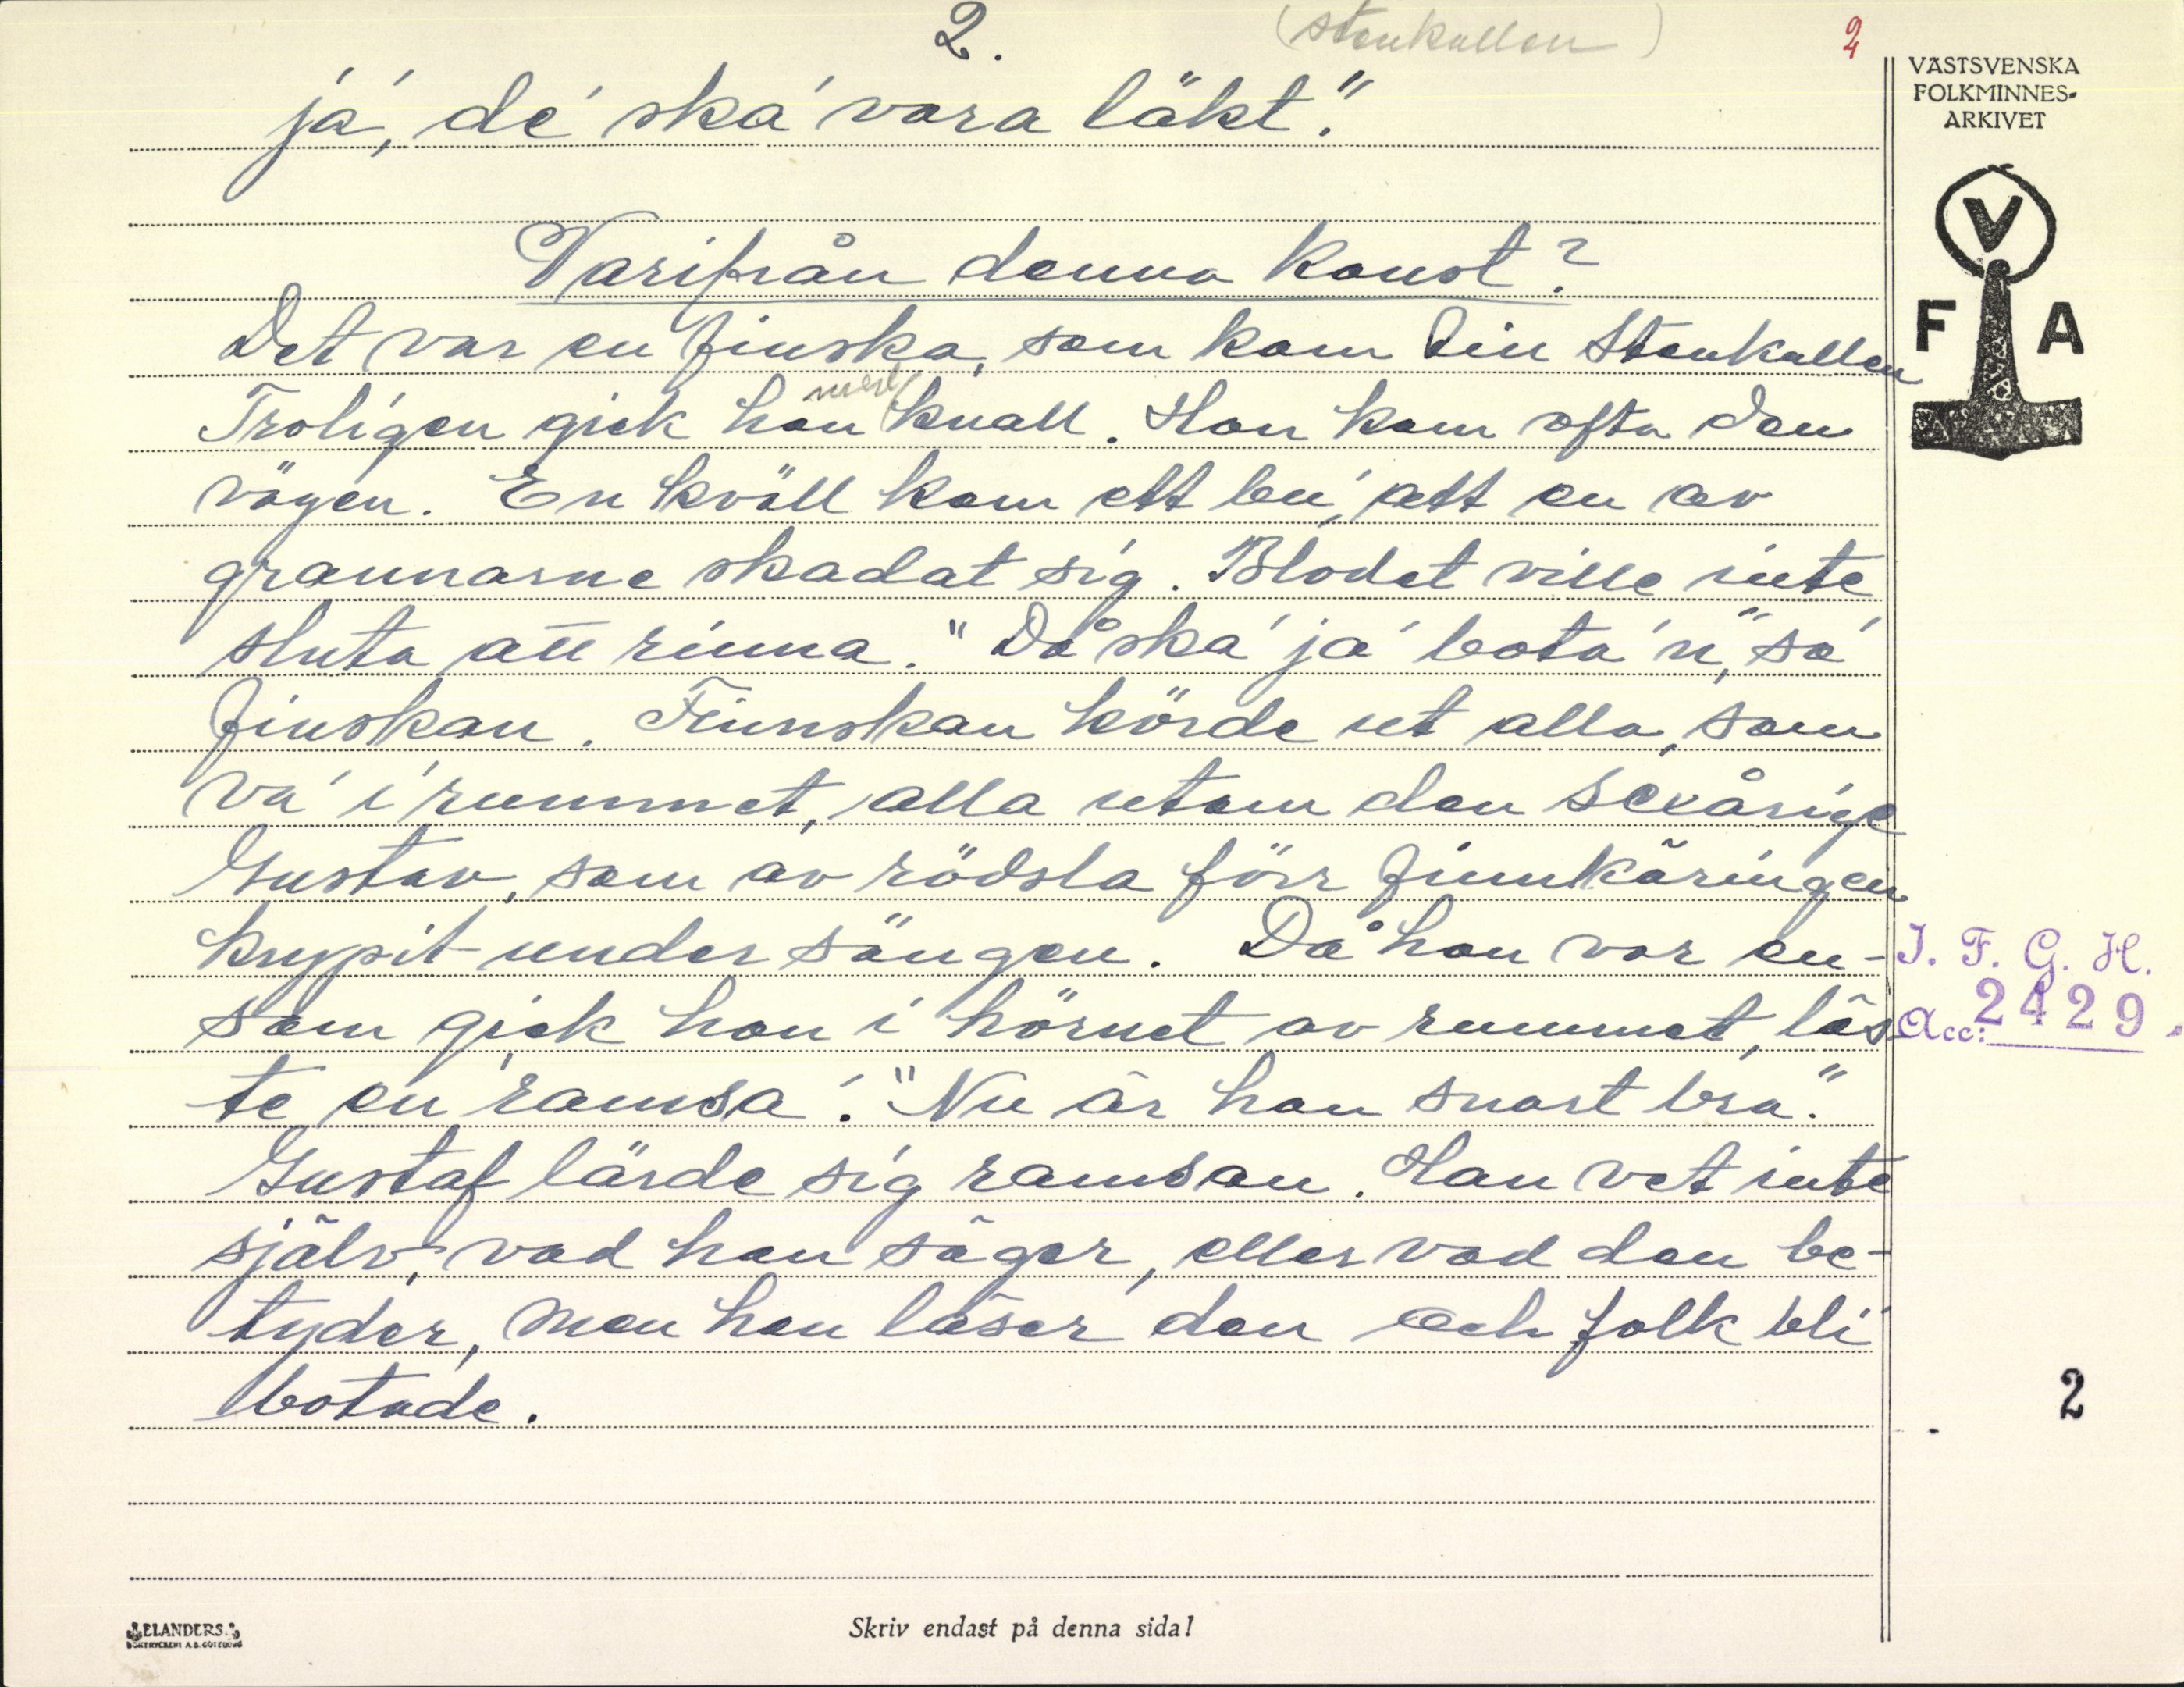 2.
(Stenkullen)
2
VÄSTSVENSKA
FOLKMINNES-
ARKIVET
V
F A
ja', de' ska' vara läkt."
Varifrån denna konst?
Det var en finska, som kom till Stenkullen
Troligen gick hon med knall. Hon kom ofta den
vägen. En kväll kom ett bu', att en av
grannarne skadat sig. Blodet ville inte
sluta att rinna. "Då ska' ja' bota'n", sa'
finskan. Finnskan körde ut alla, som
va' i rummet, alla utom den sexårige
Gustav, som av rädsla förr finnkäringen
krypit under sängen. Då hon var en-
sam gick hon i hörnet av rummet, läs-
te en ramsa'. "Nu är han snart bra."
Gustaf lärde sig ramsan. Han vet inte
själv, vad han säger, eller vad den be-
tyder, men han läser den och folk bli'
botade.
I. F. G. H.
Acc: 2429.
2
ELANDERS
BOKTRYCKERI A.B. GÖTEBORG
Skriv endast på denna sida!